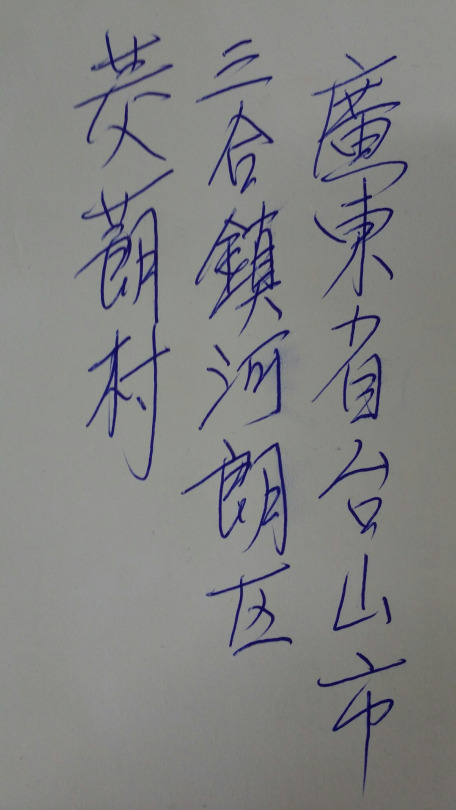 廣東省台山市
三合鎮河朗区
茭蓢村